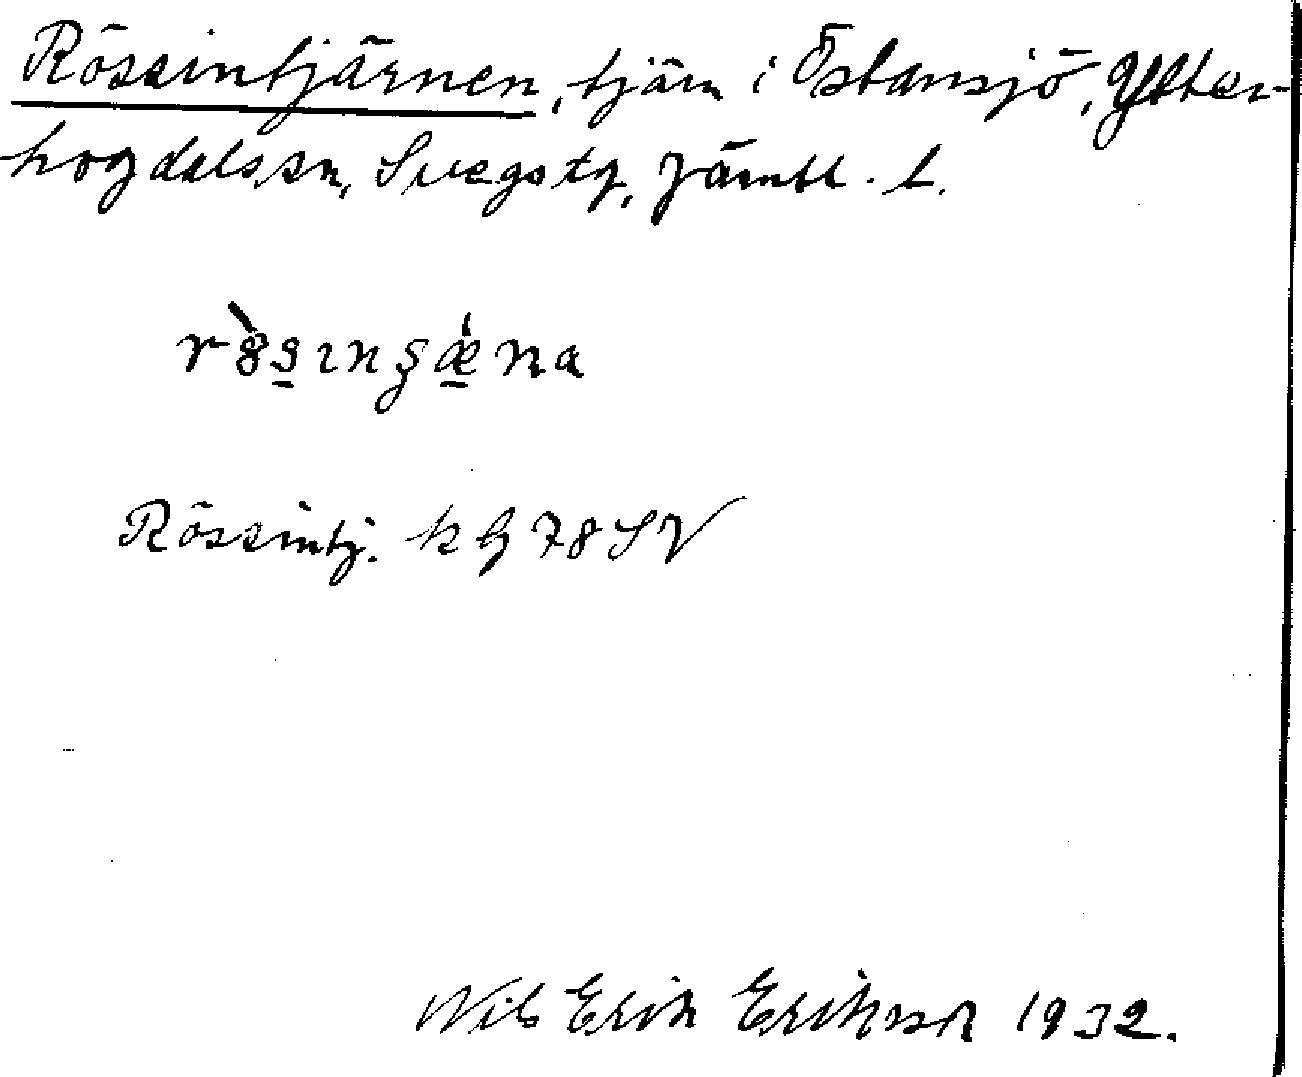 Rössintjärnen, tjärn i Östansjö, Ytter-
hogdals sn, Svegs tg, Jämtl. l.
Rössintj. k G 78 SV
Nils Erik Erikson 1932.